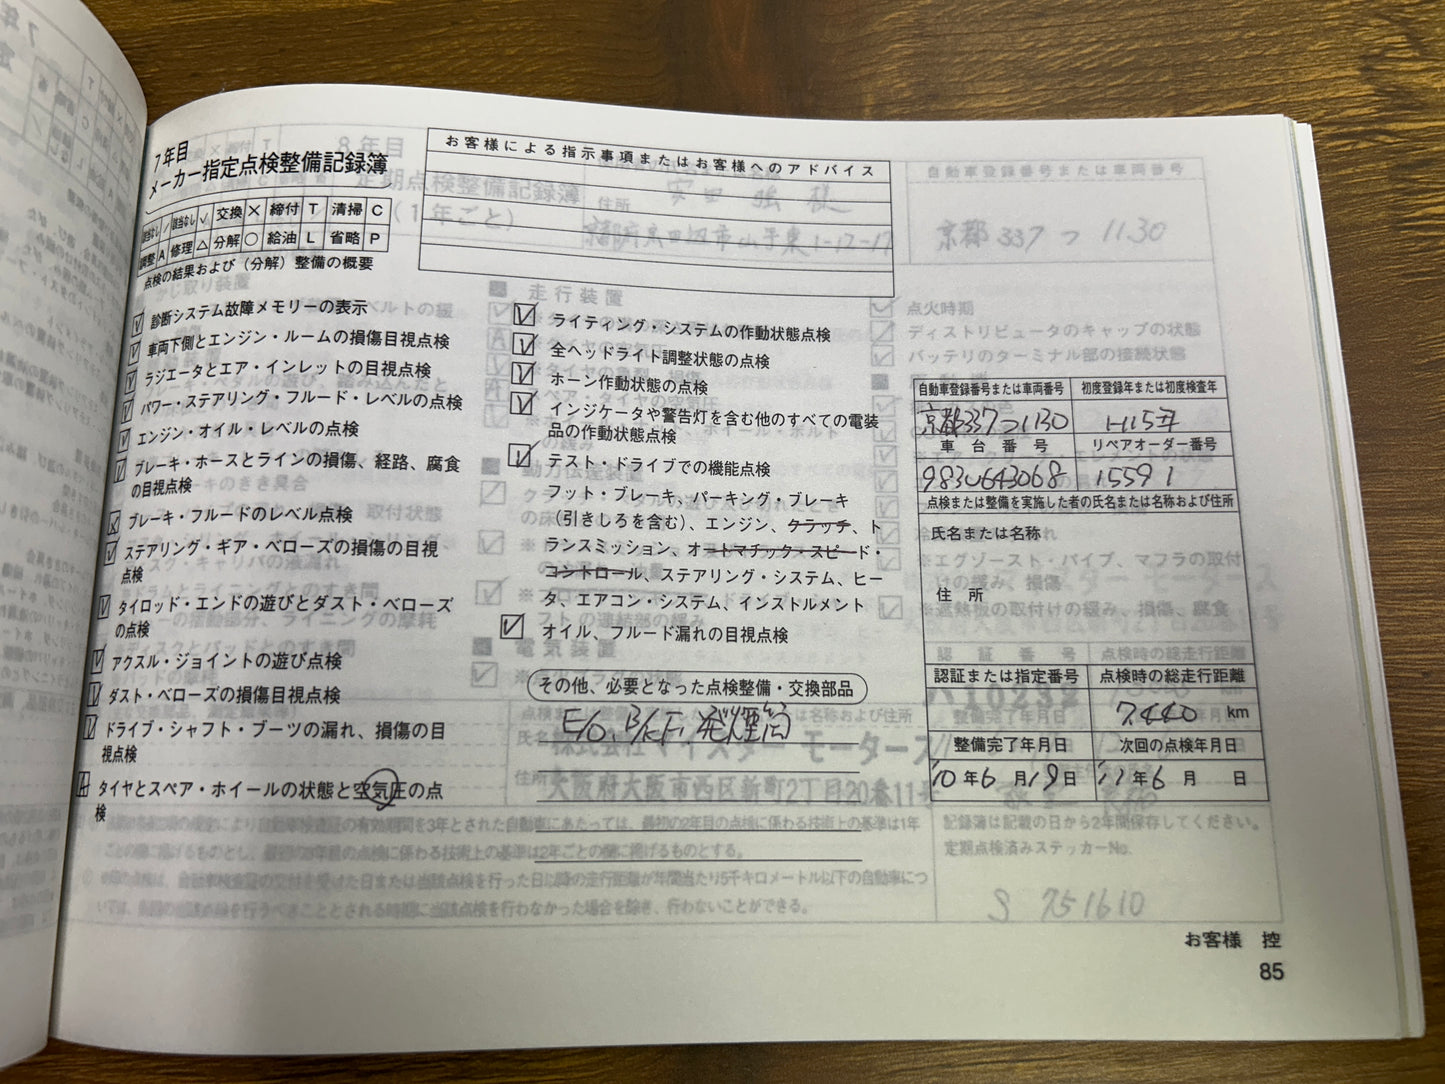 7年目
メーカー指定点検整備記録簿
該当なし / 該当なし ✓ 交換 × 締付 T 清掃 C
調整 A 修理 △ 分解 ○ 給油 L 省略 P
点検の結果および（分解）整備の概要
診断システム故障メモリーの表示
車両下側とエンジン・ルームの損傷目視点検
ラジエータとエア・インレットの目視点検
パワー・ステアリング・フルード・レベルの点検
エンジン・オイル・レベルの点検
ブレーキ・ホースとラインの損傷、経路、腐食
の目視点検
ブレーキ・フルードのレベル点検
ステアリング・ギア・ベローズの損傷の目視
点検
タイロッド・エンドの遊びとダスト・ベローズ
の点検
アクスル・ジョイントの遊び点検
ダスト・ベローズの損傷目視点検
ドライブ・シャフト・ブーツの漏れ、損傷の目
視点検
タイヤとスペア・ホイールの状態と空気圧の点
検
お客様による指示事項またはお客様へのアドバイス
ライティング・システムの作動状態点検
全ヘッドライト調整状態の点検
ホーン作動状態の点検
インジケータや警告灯を含む他のすべての電装
品の作動状態点検
テスト・ドライブでの機能点検
フット・ブレーキ、パーキング・ブレーキ
（引きしろを含む）、エンジン、クラッチ、ト
ランスミッション、オートマチック・スピード・
コントロール、ステアリング・システム、ヒー
タ、エアコン・システム、インストルメント
オイル、フルード漏れの目視点検
その他、必要となった点検整備・交換部品
E/O, B/K F, 発煙筒
自動車登録番号または車両番号 初度登録年または初度検査年
京都337つ1130 H15年
車台番号 リペアオーダー番号
9830643068 15591
点検または整備を実施した者の氏名または名称および住所
氏名または名称
住所
認証または指定番号 点検時の総走行距離
7,440 km
整備完了年月日 次回の点検年月日
'10年6月19日 '11年6月 日
お客様 控
85